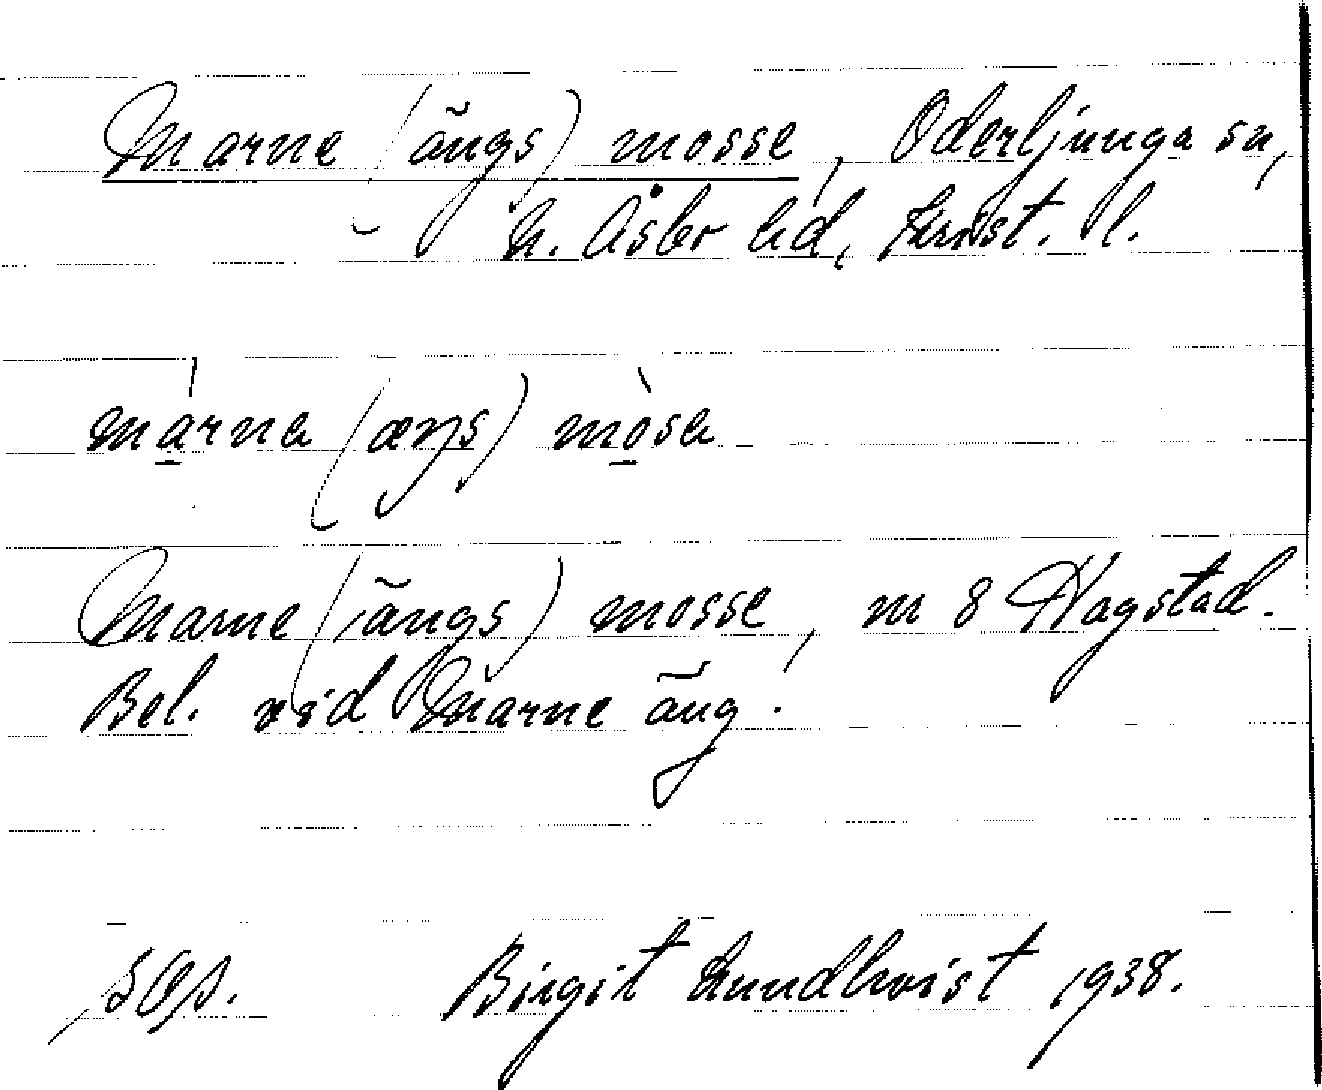 Marne (ängs) mosse, Oderljunga sn,
N. Åsbo hd, Krist. l.
márna (æŋs) mòsa
Marne (ängs) mosse, nr 8 Hagstad.
Bel. vid Marne äng.
Birgit Lundkvist 1938.